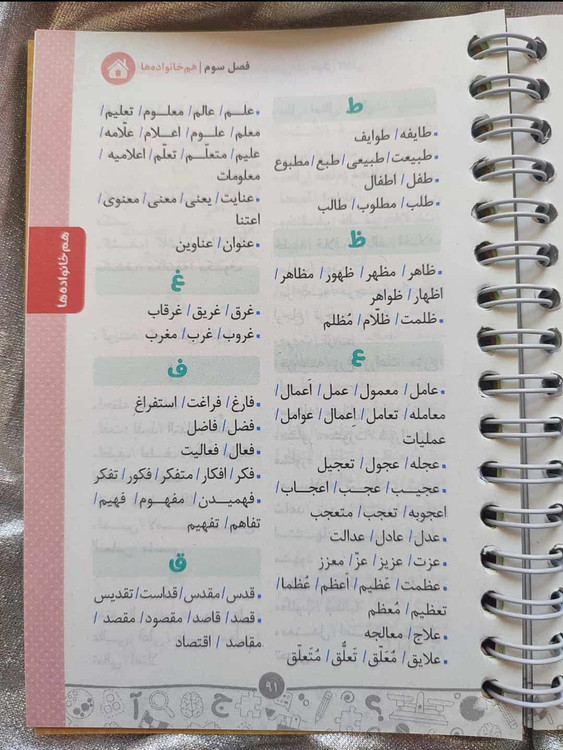 فصل سوم | هم‌خانواده‌ها
ط
طایفه/ طوایف
طبیعت/ طبیعی/ طبع/ مطبوع
طفل/ اطفال
طلب/ مطلوب/ طالب
ظ
ظاهر/ مظهر/ ظهور/ مظاهر/
اظهار/ ظواهر
ظلمت/ ظلّام/ مُظلم
ع
عامل/ معمول/ عمل/ اَعمال/
معامله/ تعامل/ اِعمال/ عوامل/
عملیات
عجله/ عجول/ تعجیل
عجیب/ عجب/ اعجاب/
اعجوبه/ تعجب/ متعجب
عدل/ عادل/ عدالت
عزت/ عزیز/ عزّ/ معزز
عظمت/ عَظیم/ أعظم/ عُظما/
تعظیم/ مُعظم
علاج/ معالجه
علایق/ مُعَلّق/ تَعلُّق/ مُتَعلّق
علم/ عالم/ معلوم/ تعلیم/
معلم/ علوم/ اعلام/ علّامه/
علیم/ متعلّم/ تعلّم/ اعلامیه/
معلومات
عنایت/ یعنی/ معنی/ معنوی/
اعتنا
عنوان/ عناوین
غ
غرق/ غریق/ غرقاب
غروب/ غرب/ مغرب
ف
فارغ/ فراغت/ استفراغ
فضل/ فاضل
فعال/ فعالیت
فکر/ افکار/ متفکر/ فکور/ تفکر
فهمیدن/ مفهوم/ فهیم/
تفاهم/ تفهیم
ق
قدس/ مقدس/ قداست/ تقدیس
قصد/ قاصد/ مقصود/ مقصد/
مقاصد/ اقتصاد
هم‌خانواده‌ها
۹۱